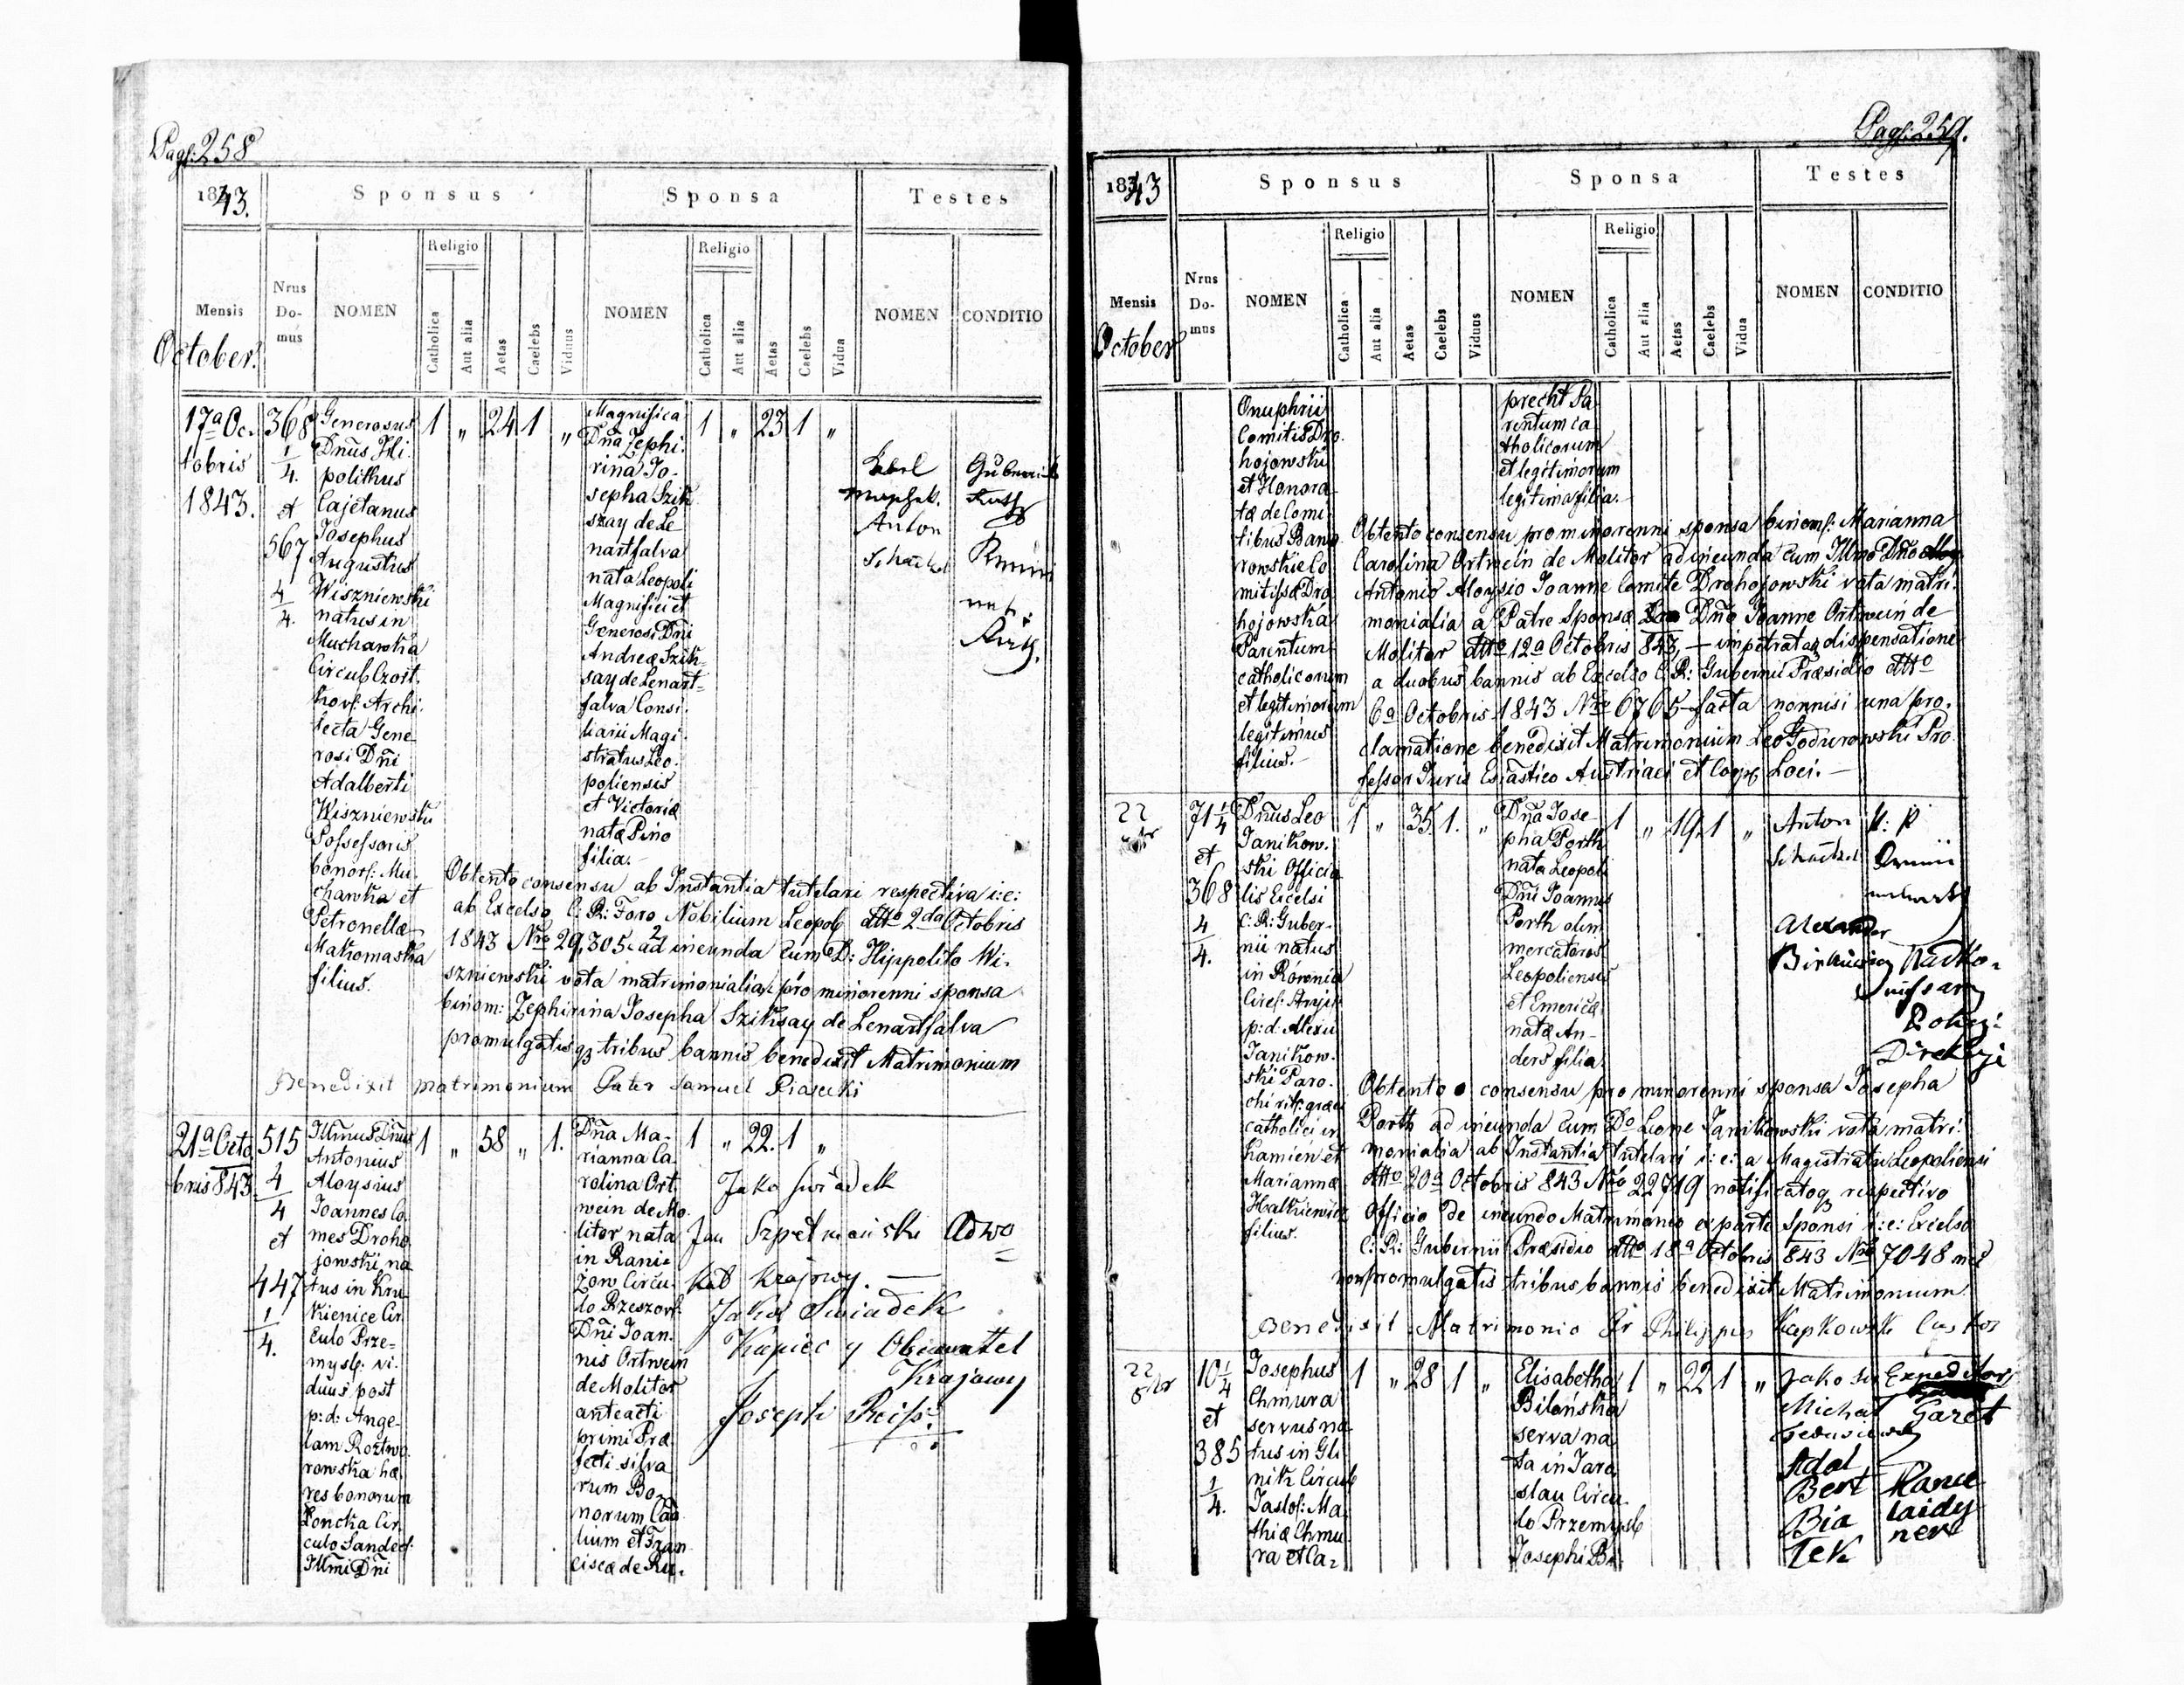 Pag: 258
1843.
Sponsus
Sponsa
Testes
Mensis
October.
Nrus Do-mus
NOMEN
Religio
Catholica
Aut alia
Aetas
Caelebs
Viduus
NOMEN
Religio
Catholica
Aut alia
Aetas
Caelebs
Vidua
NOMEN
CONDITIO
17a Oc-
tobris
1843.
368
1/4.
et
567
4/4.
Generosus
Dnus Hi-
polithus
Cajetanus
Josephus
Augustus
Wiszniewski
natus in
Muchawka
Circulo Czort-
kov: Archi-
tecta Gene-
rosi Dni
Adalberti
Wiszniewski
Possessoris
bonor: Mu-
chawka et
Petronella
Makomaska
filius.
1 „ 24 1 „
Magnifica
Dna Zephi-
rina Jo-
sepha Szik-
szay de Le-
nartfalva
nata Leopoli
Magnifici et
Generosi Dni
Andrea Szik-
say de Lenart-
falva Consi-
liarii Magi-
stratus Leo-
poliensis
et Victoria
nata Pino
filia.-
1 „ 23 1 „
Anton
Obtento consensu ab Instantia tutelari respectiva i: e:
ab Excelso C: R: Foro Nobilium Leopol dtto 2da Octobris
1843 Nro 29,305 ad ineunda cum D: Hippolito Wi-
szniewski vota matrimonialia pro minorenni sponsa
binom: Zephirina Josepha Sziksay de Lenartfalva
promulgatisq3 tribus bannis benedixit Matrimonium
Benedixit matrimonium Pater Samuel Piasecki
21a Octo-
bris 843.
515
4/4
et
447
1/4.
Illmus Dnus
Antonius
Aloysius
Joannes Co-
mes Droho-
jowski na-
tus in Kru-
kienice Cir-
culo Prze-
mysl: vi-
duus post
p: d: Ange-
lam Roztwo-
rowska hae-
res bonorum
Łoncka Cir-
culo Sandec:
Illmi Dni
1 „ 58 „ 1.
Dna Ma-
rianna Ca-
rolina Ort-
wein de Mo-
litor nata
in Rani-
żow Circu-
lo Rzeszow:
Dni Joan-
nis Ortwein
de Molitor
anteacti
primi Prae-
fecti silva-
rum Bo-
norum Cao-
lium et Fran-
cisca de Ru-
1 „ 22. 1 „
Jako świadek
Jan Szpetmański Adwo
kat krajowy. —
Jako Swiadek
Kupiec y Obiwattel
Krajowy
Joseph Reiss
Pag: 259.
1843
Sponsus
Sponsa
Testes
Mensis
October
Nrus Do-mus
NOMEN
Religio
Catholica
Aut alia
Aetas
Caelebs
Viduus
NOMEN
Religio
Catholica
Aut alia
Aetas
Caelebs
Vidua
NOMEN
CONDITIO
Onuphrii
Comitis Dro-
hojowski
et Honora-
ta de Comi-
tibus Bawo-
rowskie Co-
mitissa Dro-
hojowska
Parentum
catholicorum
et legitimorum
legitimus
filius.-
precht Pa-
rentum ca-
tholicorum
et legitimorum
legitima filia.
Obtento consensu pro minorenni sponsa binom: Marianna
Carolina Ortwein de Molitor ad ineunda cum Illmo Dno
Antonio Aloysio Joanne Comite Drohojowski vota matri-
monialia a Patre Sponsa Dno Joanne Ortwein de
Molitor dtto 12a Octobris 843, — impetrataq3 dispensatione
a duobus bannis ab Excelso C: R: Gubernii Praesidio dtto
6a Octobris 1843 Nro 6765 facta nonnisi una pro-
clamatione benedixit Matrimonium Leo Godurowski Pro-
fessor Juris Esiastico Austriaci et Coop Loci.-
22
71 1/4
et
368
4/4.
Dnus Leo
Janikow-
ski Officia-
lis Excelsi
C: R: Guber-
nii natus
in Równia
Circ: Stryj:
p: d: Alexii
Janikow-
ski Paro-
chi rit: graeci
catholici in
Kamien et
Marianna
Halkiewicz
filius.
1 „ 35 1. „
Dna Jose-
pha Porth
nata Leopoli
Dni Joannis
Porth olim
mercatoris
Leopoliensis
et Emerica
nata An-
ders filia
1 „ 19. 1 „
Anton
Alexander
Polizei
Direkcyi
Obtento consensu pro minorenni sponsa Josepha
Porth ad ineunda cum Do Leone Janikowski vota matri-
monialia ab Instantia tutelari i: e: a Magistratu Leopoliensi
dtto 20a Octobris 843 Nro 22719 notificatoq3 respectivo
Officio de ineundo Matrimonio ex parte Sponsi i: e: Excelso
C: R: Gubernii Praesidio dtto 18a Octobris 843 Nro 7048 nec
non promulgatis tribus bannis benedixit Matrimonium.
Benedixit Matrimonio Fr Philippus Kapkowski Custos
22
10 1/4
et
385
1/4.
Josephus
Chmura
servus na-
tus in Gli-
nik Circulo
Jaslo: Ma-
thia Chmu-
ra et Ca-
1 „ 28 1 „
Elisabetha
Bilańska
serva na-
ta in Jaro-
slau Circu-
lo Przemysl
Josephi Bi-
1 „ 22 1 „
Jako św Expeditor
Michał Gazet
Adal
Bert
Bia
Tek